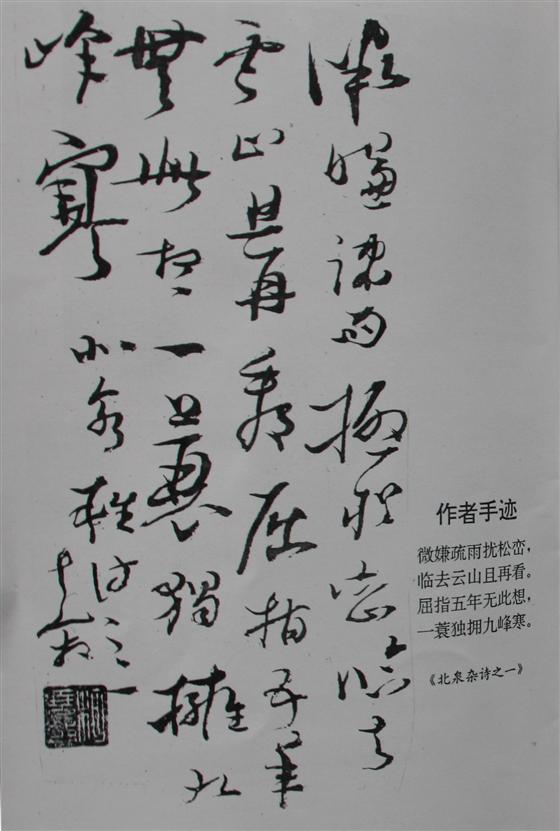 微嫌疎雨擾松峦臨去
云山且再看屈指五年
無此想一蓑獨擁九
峰寒 北泉雜詩之一
作者手迹
微嫌疏雨扰松峦，
临去云山且再看。
屈指五年无此想，
一蓑独拥九峰寒。
《北泉杂诗之一》